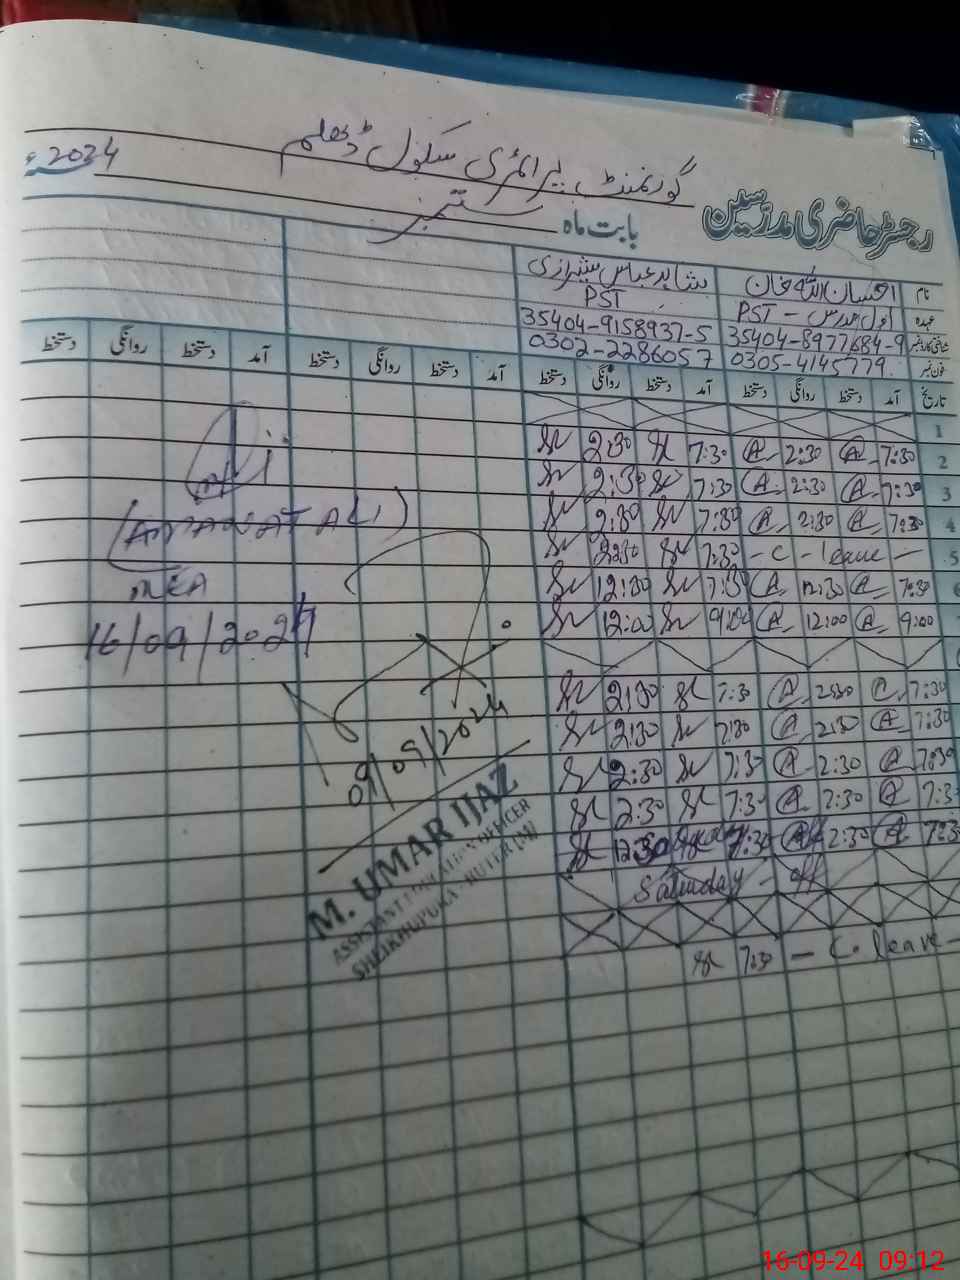 گورنمنٹ پرائمری سکول ڈھلم
رجسٹر حاضری مدرسین بابت ماہ ستمبر 2024ء
نام احسان اللہ خان شاہد عباس شیرازی
عہدہ اول مدرس - PST PST
شناختی کارڈ نمبر 35404-8977684-9 35404-9158937-5
فون نمبر 0305-4145779 0302-2286057
تاریخ آمد دستخط روانگی دستخط آمد دستخط روانگی دستخط آمد دستخط روانگی دستخط آمد دستخط روانگی دستخط
1
2 7:30 A 2:30 A 7:30 2:30
3 7:30 A 2:30 A 7:30 2:30
4 7:30 A 2:30 A 7:30 2:30
5 - C - leave - 7:30 2:30
6 7:30 A 12:30 A 7:30 12:30
9:00 A 12:00 A 9:00 12:00
7:30 A 2:30 A 7:30 2:30
7:30 A 2:30 A 7:30 2:30
7:30 A 2:30 A 7:30 2:30
7:3 A 2:30 A 7:30 2:30
7:3 A 2:30 7:30 12:30
Saturday - off
7:30 - C. leave -
(AMANAT ALI)
MEA
16/09/2024
09/09/2024
M. UMAR IJAZ
ASSISTANT EDUCATION OFFICER
16-09-24 09:12